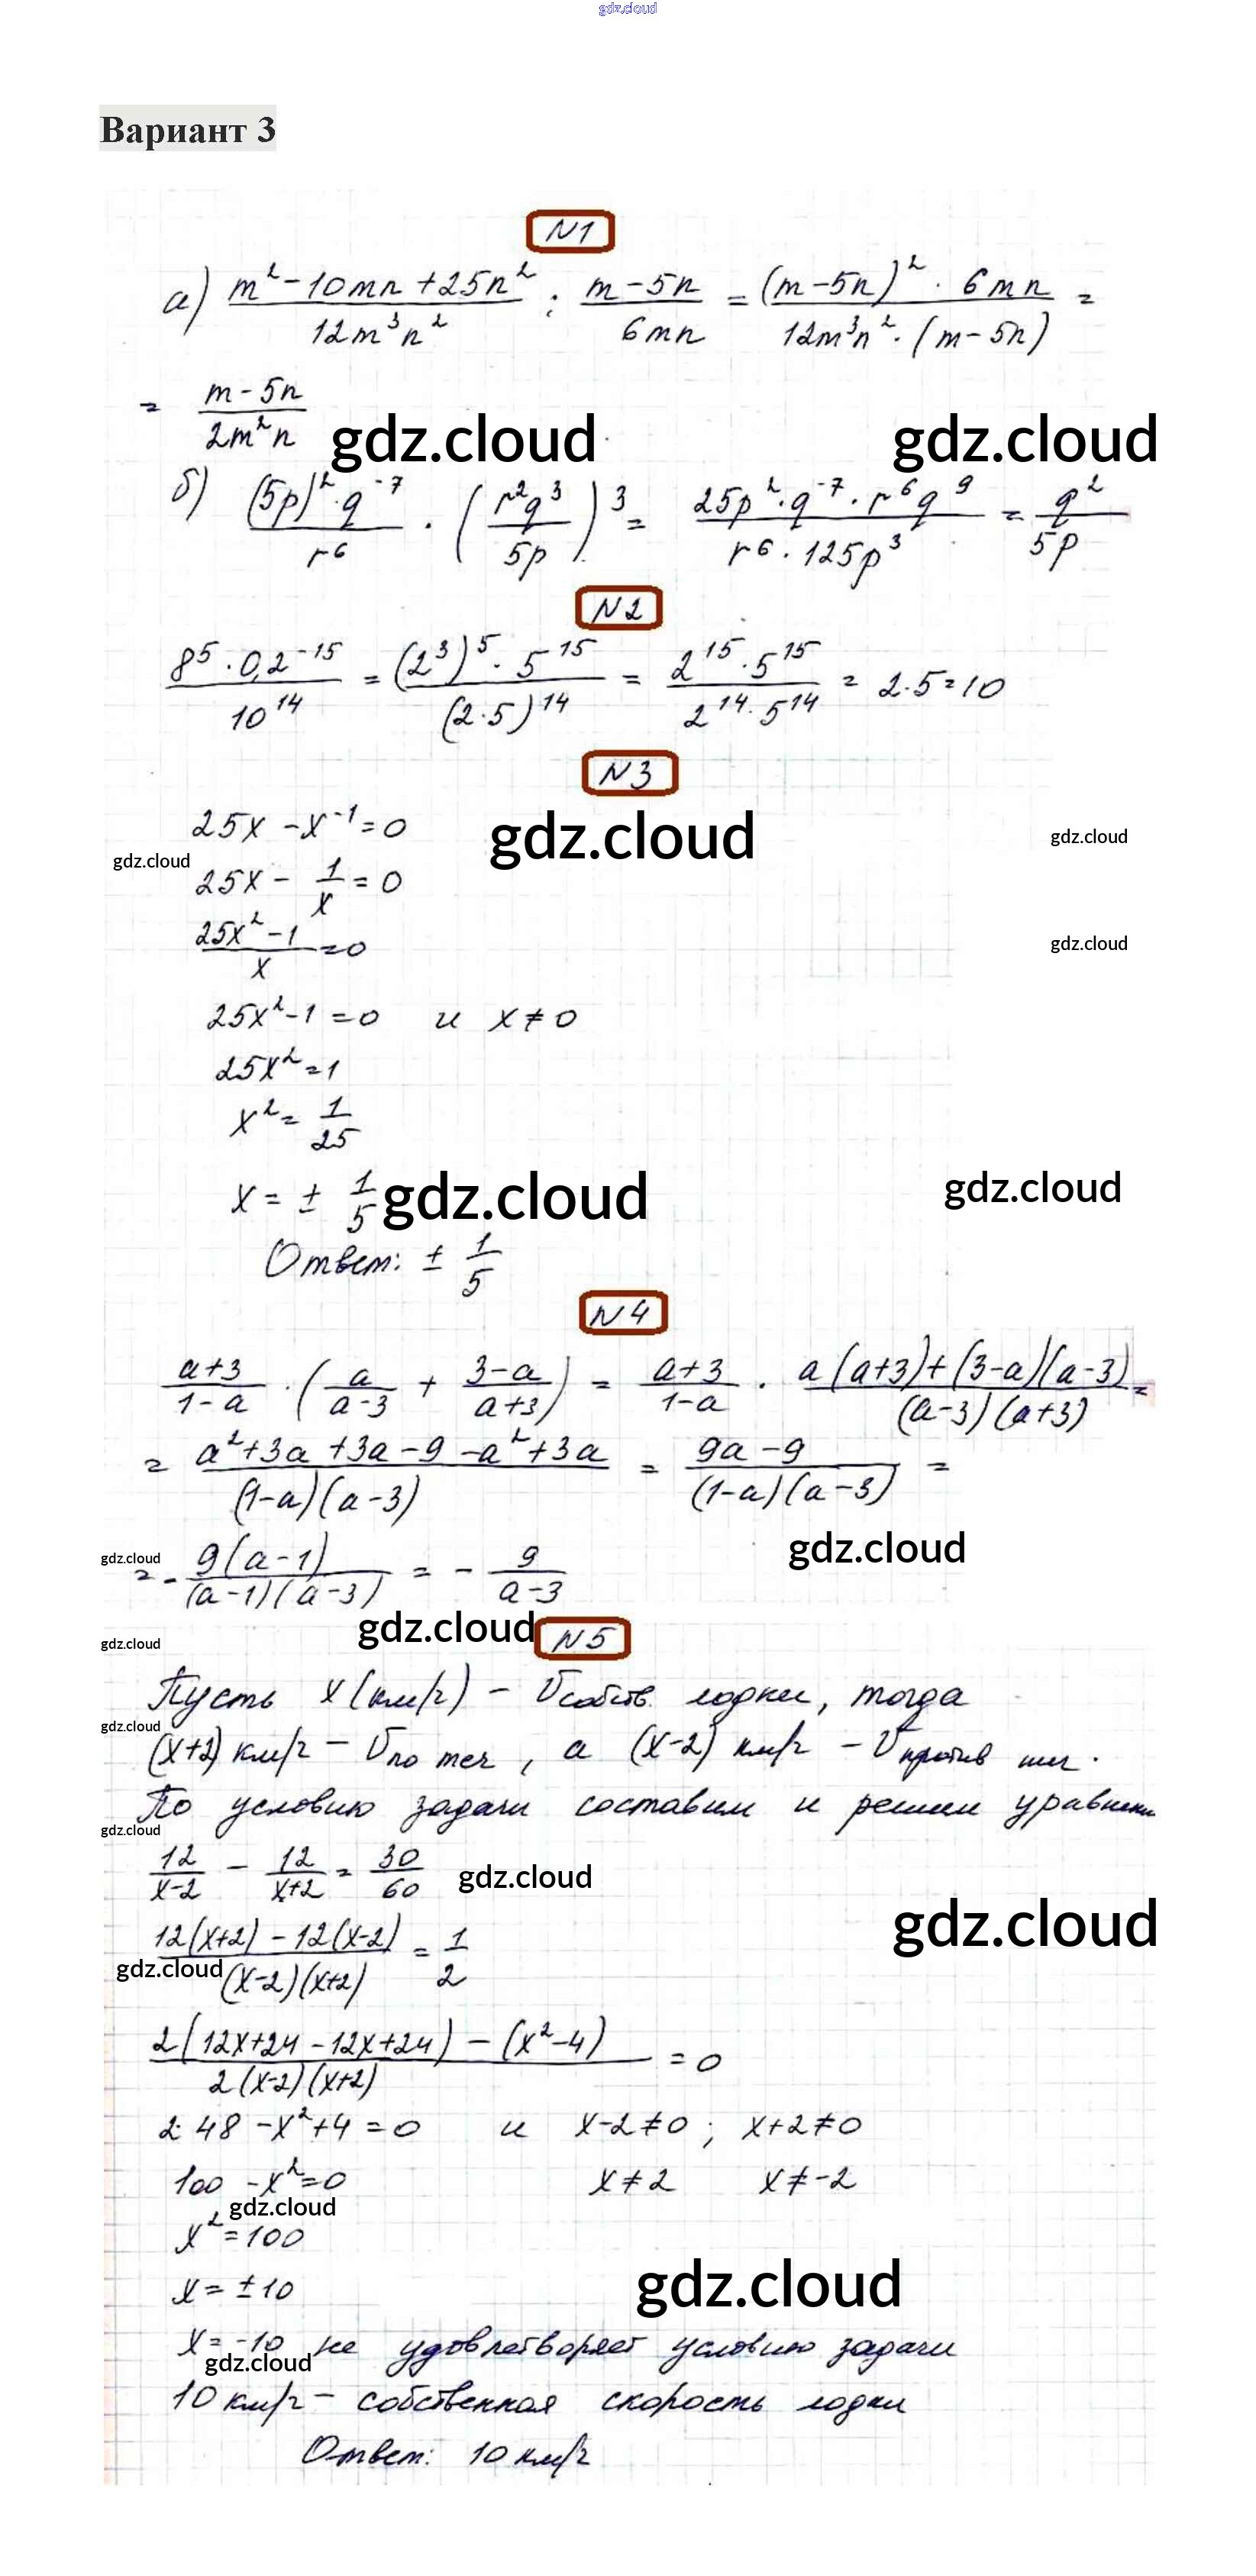 gdz.cloud
Вариант 3
N1
а) (m² - 10mn + 25n²)/(12m³n²) : (m - 5n)/(6mn) = ((m - 5n)² · 6mn)/(12m³n² · (m - 5n)) =
= (m - 5n)/(2m²n)
gdz.cloud gdz.cloud
б) ((5p)² · q⁻⁷)/r⁶ · (r²q³/5p)³ = (25p² · q⁻⁷ · r⁶q⁹)/(r⁶ · 125p³) = q²/5p
N2
(8⁵ · 0,2⁻¹⁵)/10¹⁴ = ((2³)⁵ · 5¹⁵)/(2·5)¹⁴ = (2¹⁵ · 5¹⁵)/(2¹⁴ · 5¹⁴) = 2·5=10
N3
25x - x⁻¹ = 0
gdz.cloud gdz.cloud
gdz.cloud
25x - 1/x = 0
(25x² - 1)/x = 0
gdz.cloud
25x² - 1 = 0 и x ≠ 0
25x² = 1
x² = 1/25
x = ± 1/5
gdz.cloud gdz.cloud
Ответ: ± 1/5
N4
(a+3)/(1-a) · (a/(a-3) + (3-a)/(a+3)) = (a+3)/(1-a) · (a(a+3)+(3-a)(a-3))/((a-3)(a+3)) =
= (a²+3a+3a-9-a²+3a)/((1-a)(a-3)) = (9a-9)/((1-a)(a-3)) =
gdz.cloud gdz.cloud
= - 9(a-1)/((a-1)(a-3)) = - 9/(a-3)
gdz.cloud
gdz.cloud
N5
Пусть x (км/ч) - Vсобств. лодки, тогда
gdz.cloud
(x+2) км/ч - Vпо теч, а (x-2) км/ч - Vпротив теч.
По условию задачи составим и решим уравнение
gdz.cloud
12/(x-2) - 12/(x+2) = 30/60
gdz.cloud
gdz.cloud
(12(x+2) - 12(x-2))/((x-2)(x+2)) = 1/2
gdz.cloud
(2(12x+24-12x+24) - (x²-4))/(2(x-2)(x+2)) = 0
2·48 - x² + 4 = 0 и x-2≠0; x+2≠0
100 - x² = 0 x≠2 x≠-2
gdz.cloud
x² = 100
x = ±10
gdz.cloud
x = -10 не удовлетворяет условию задачи
gdz.cloud
10 км/ч - собственная скорость лодки
Ответ: 10 км/ч